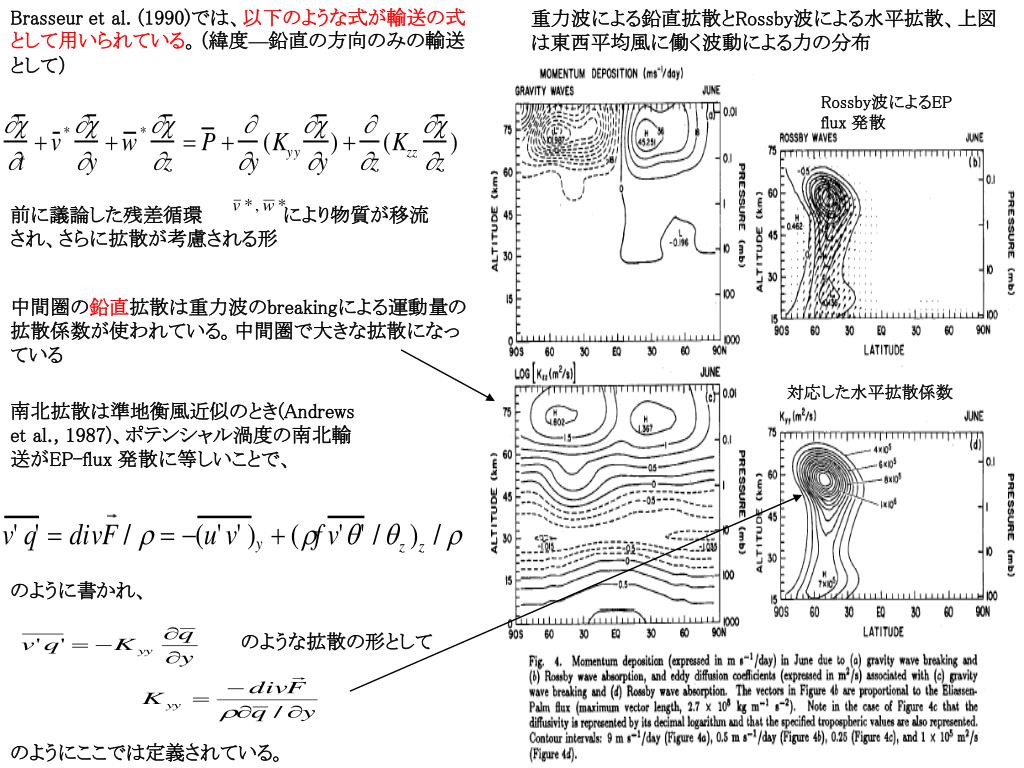 Brasseur et al. (1990)では、以下のような式が輸送の式
として用いられている。(緯度—鉛直の方向のみの輸送
として)
∂χ̄/∂t + v̄* ∂χ̄/∂y + w̄* ∂χ̄/∂z = P̄ + ∂/∂y (K_yy ∂χ̄/∂y) + ∂/∂z (K_zz ∂χ̄/∂z)
前に議論した残差循環 v̄*, w̄* により物質が移流
され、さらに拡散が考慮される形
中間圏の鉛直拡散は重力波のbreakingによる運動量の
拡散係数が使われている。中間圏で大きな拡散になっ
ている
南北拡散は準地衡風近似のとき(Andrews
et al., 1987)、ポテンシャル渦度の南北輸
送がEP-flux 発散に等しいことで、
v'q' = divF / ρ = −(u'v')_y + (ρf v'θ' / θ_z)_z / ρ
のように書かれ、
v'q' = −K_yy ∂q̄/∂y のような拡散の形として
K_yy = −divF / ρ∂q̄ / ∂y
のようにここでは定義されている。
重力波による鉛直拡散とRossby波による水平拡散、上図
は東西平均風に働く波動による力の分布
MOMENTUM DEPOSITION (ms⁻¹/day)
GRAVITY WAVES JUNE
(a)
75
60
45
30
15
0
ALTITUDE (km)
0.01
0.1
1
10
100
1000
PRESSURE (mb)
H
45.251
36
L
-0.196
0
90S 60 30 EQ 30 60 90N
Rossby波によるEP
flux 発散
ROSSBY WAVES JUNE
(b)
-0.5
H
0.462
75
60
45
30
15
ALTITUDE (km)
0.1
1
10
100
PRESSURE (mb)
90S 60 30 EQ 30 60 90N
LATITUDE
LOG [K_zz (m²/s)] JUNE
(c)
H
1.602
H
1.367
1.5
1
0.5
0
-0.5
-1.015
-1.035
-0.5
0
0.5
75
60
45
30
15
0
ALTITUDE (km)
0.01
0.1
1
10
100
1000
PRESSURE (mb)
90S 60 30 EQ 30 60 90N
対応した水平拡散係数
K_yy (m²/s) JUNE
(d)
4×10⁵
6×10⁵
8×10⁵
1×10⁶
H
7×10⁵
75
60
45
30
15
ALTITUDE (km)
0.1
1
10
100
PRESSURE (mb)
90S 60 30 EQ 30 60 90N
LATITUDE
Fig. 4. Momentum deposition (expressed in m s⁻¹/day) in June due to (a) gravity wave breaking and
(b) Rossby wave absorption, and eddy diffusion coefficients (expressed in m²/s) associated with (c) gravity
wave breaking and (d) Rossby wave absorption. The vectors in Figure 4b are proportional to the Eliassen-
Palm flux (maximum vector length, 2.7 × 10⁸ kg m⁻¹ s⁻²). Note in the case of Figure 4c that the
diffusivity is represented by its decimal logarithm and that the specified tropospheric values are also represented.
Contour intervals: 9 m s⁻¹/day (Figure 4a), 0.5 m s⁻¹/day (Figure 4b), 0.25 (Figure 4c), and 1 × 10⁵ m²/s
(Figure 4d).